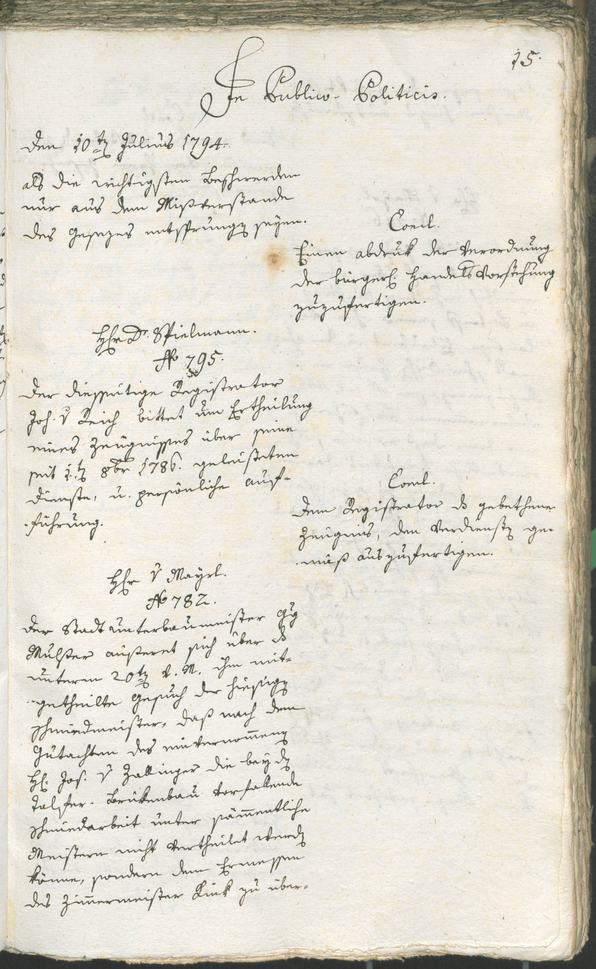 15.
In Publico-Politicis.
den 10ten Julius 1794.
als die wichtigsten Beschwerden
nur aus dem Mißverstande
des Gesezes entsprungen seyen.
Concl.
Einen abdruk der Verordnung
der bürgerl. Handels Vorsehung
zuzufertigen.
Hhr Dr. Spielmann.
No 795.
Der diesseitige Registrator
Joh. v Reich bittet um Ertheilung
eines Zeugnisses über seine
seit 1ten 8br 1786. geleisteten
Dienste, u. persönliche auf-
führung.
Concl.
Dem Registrator das gebethene
Zeugnis, dem Verdienste ge-
mäß auszufertigen.
Hhr v Mayrl.
No 782.
Der Stadtunterbaumeister
Mulser äußeret sich über das
unterm 20ten v. M. ihm mit-
getheilte Gesuch der hiesigen
Schmiedmeister, daß nach dem
Gutachten des einvernommenen
H. Jos. v Zallinger die bey den
Talfer-Brükenbau vorfallende
Schmiedarbeit unter sämmentliche
Meistern nicht vertheilet werden
könne, sondern dem Ermessen
des Zimmermeister Kink zu über-